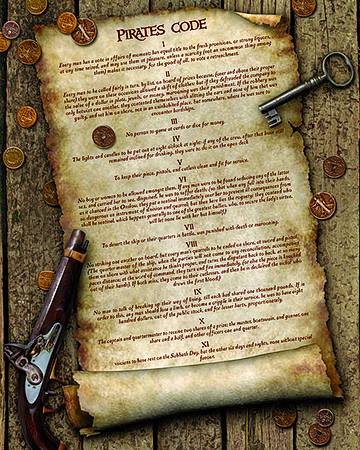 PIRATES CODE
I
Every man has a vote in affairs of moment; has equal title to the fresh provisions, or strong liquors,
at any time seized, and may use them at pleasure, unless a scarcity (not an uncommon thing among
them) makes it necessary, for the good of all, to vote a retrenchment.
II
Every man to be called fairly in turn, by list, on board of prizes because, (over and above their proper
share) they were on these occasions allowed a shift of clothes: but if they defrauded the company to
the value of a dollar in plate, jewels, or money, marooning was their punishment. If the robbery was
only betwixt one another, they contented themselves with slitting the ears and nose of him that was
guilty, and set him on shore, not in an uninhabited place, but somewhere, where he was sure to
encounter hardships.
III
No person to game at cards or dice for money.
IV
The lights and candles to be put out at eight o'clock at night: if any of the crew, after that hour still
remained inclined for drinking, they were to do it on the open deck
V
To keep their piece, pistols, and cutlass clean and fit for service.
VI
No boy or woman to be allowed amongst them. If any man were to be found seducing any of the latter
sex, and carried her to sea, disguised, he was to suffer death; (so that when any fell into their hands,
as it chanced in the Onslow, they put a sentinel immediately over her to prevent ill consequences from
so dangerous an instrument of division and quarrel; but then here lies the roguery; they contend who
shall be sentinel, which happens generally to one of the greatest bullies, who, to secure the lady's virtue,
will let none lie with her but himself.)
VII
To desert the ship or their quarters in battle, was punished with death or marooning.
VIII
No striking one another on board, but every man's quarrels to be ended on shore, at sword and pistol.
(The quarter-master of the ship, when the parties will not come to any reconciliation, accompanies
them on shore with what assistance he thinks proper, and turns the disputant back to back, at so many
paces distance; at the word of command, they turn and fire immediately, (or else the piece is knocked
out of their hands). If both miss, they come to their cutlasses, and then he is declared the victor who
draws the first blood.)
IX
No man to talk of breaking up their way of living, till each had shared one thousand pounds. If in
order to this, any man should lose a limb, or become a cripple in their service, he was to have eight
hundred dollars, out of the public stock, and for lesser hurts, proportionately
X
The captain and quartermaster to receive two shares of a prize; the master, boatswain, and gunner, one
share and a half, and other officers one and quarter.
XI
to have rest on the Sabbath Day, but the other six days and nights, none without special
favour.